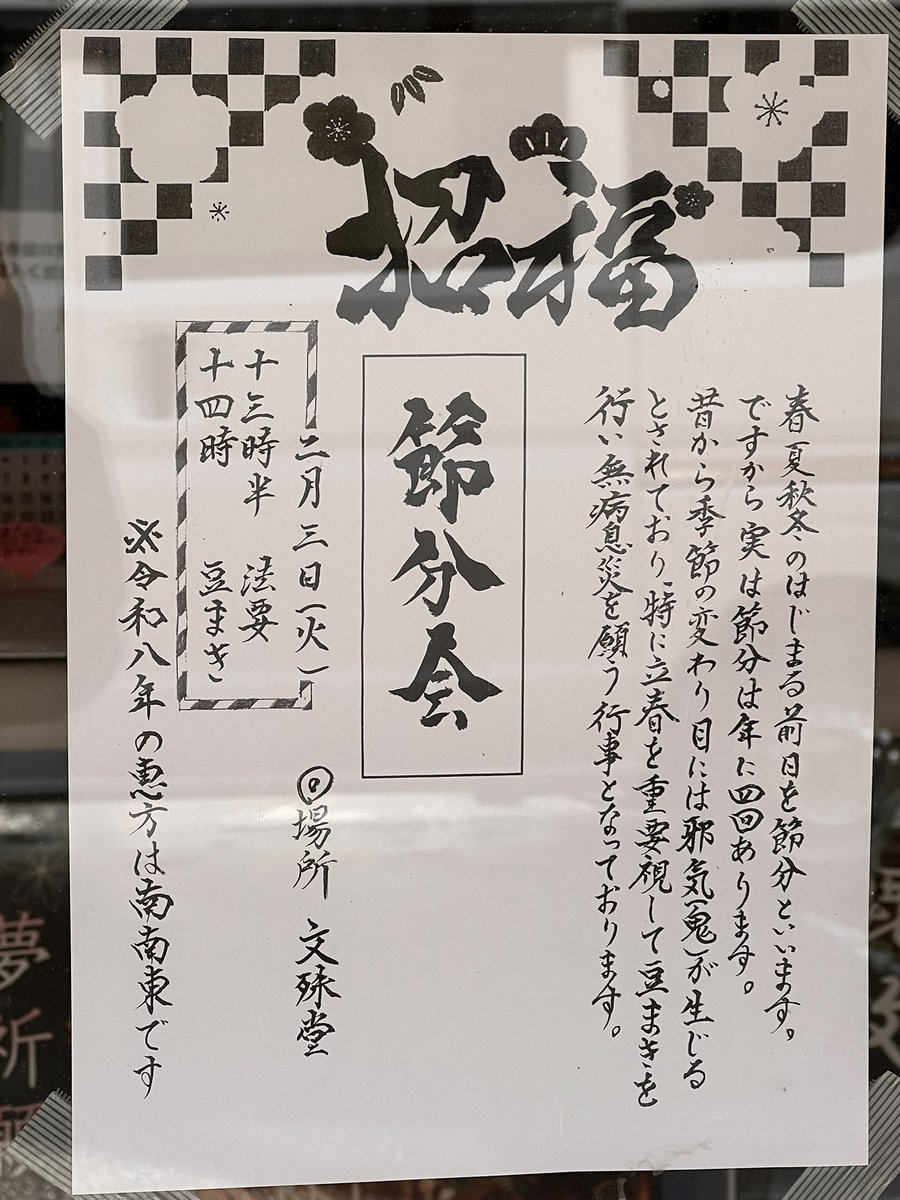 招福
春夏秋冬のはじまる前日を節分といいます。
ですから実は節分は年に四回あります。
昔から季節の変わり目には邪気(鬼)が生じる
とされており、特に立春を重要視して豆まきを
行い無病息災を願う行事となっております。
節分会
二月三日(火)
十三時半 法要
十四時 豆まき
◎場所 文殊堂
※令和八年の恵方は南南東です
夢
祈
願